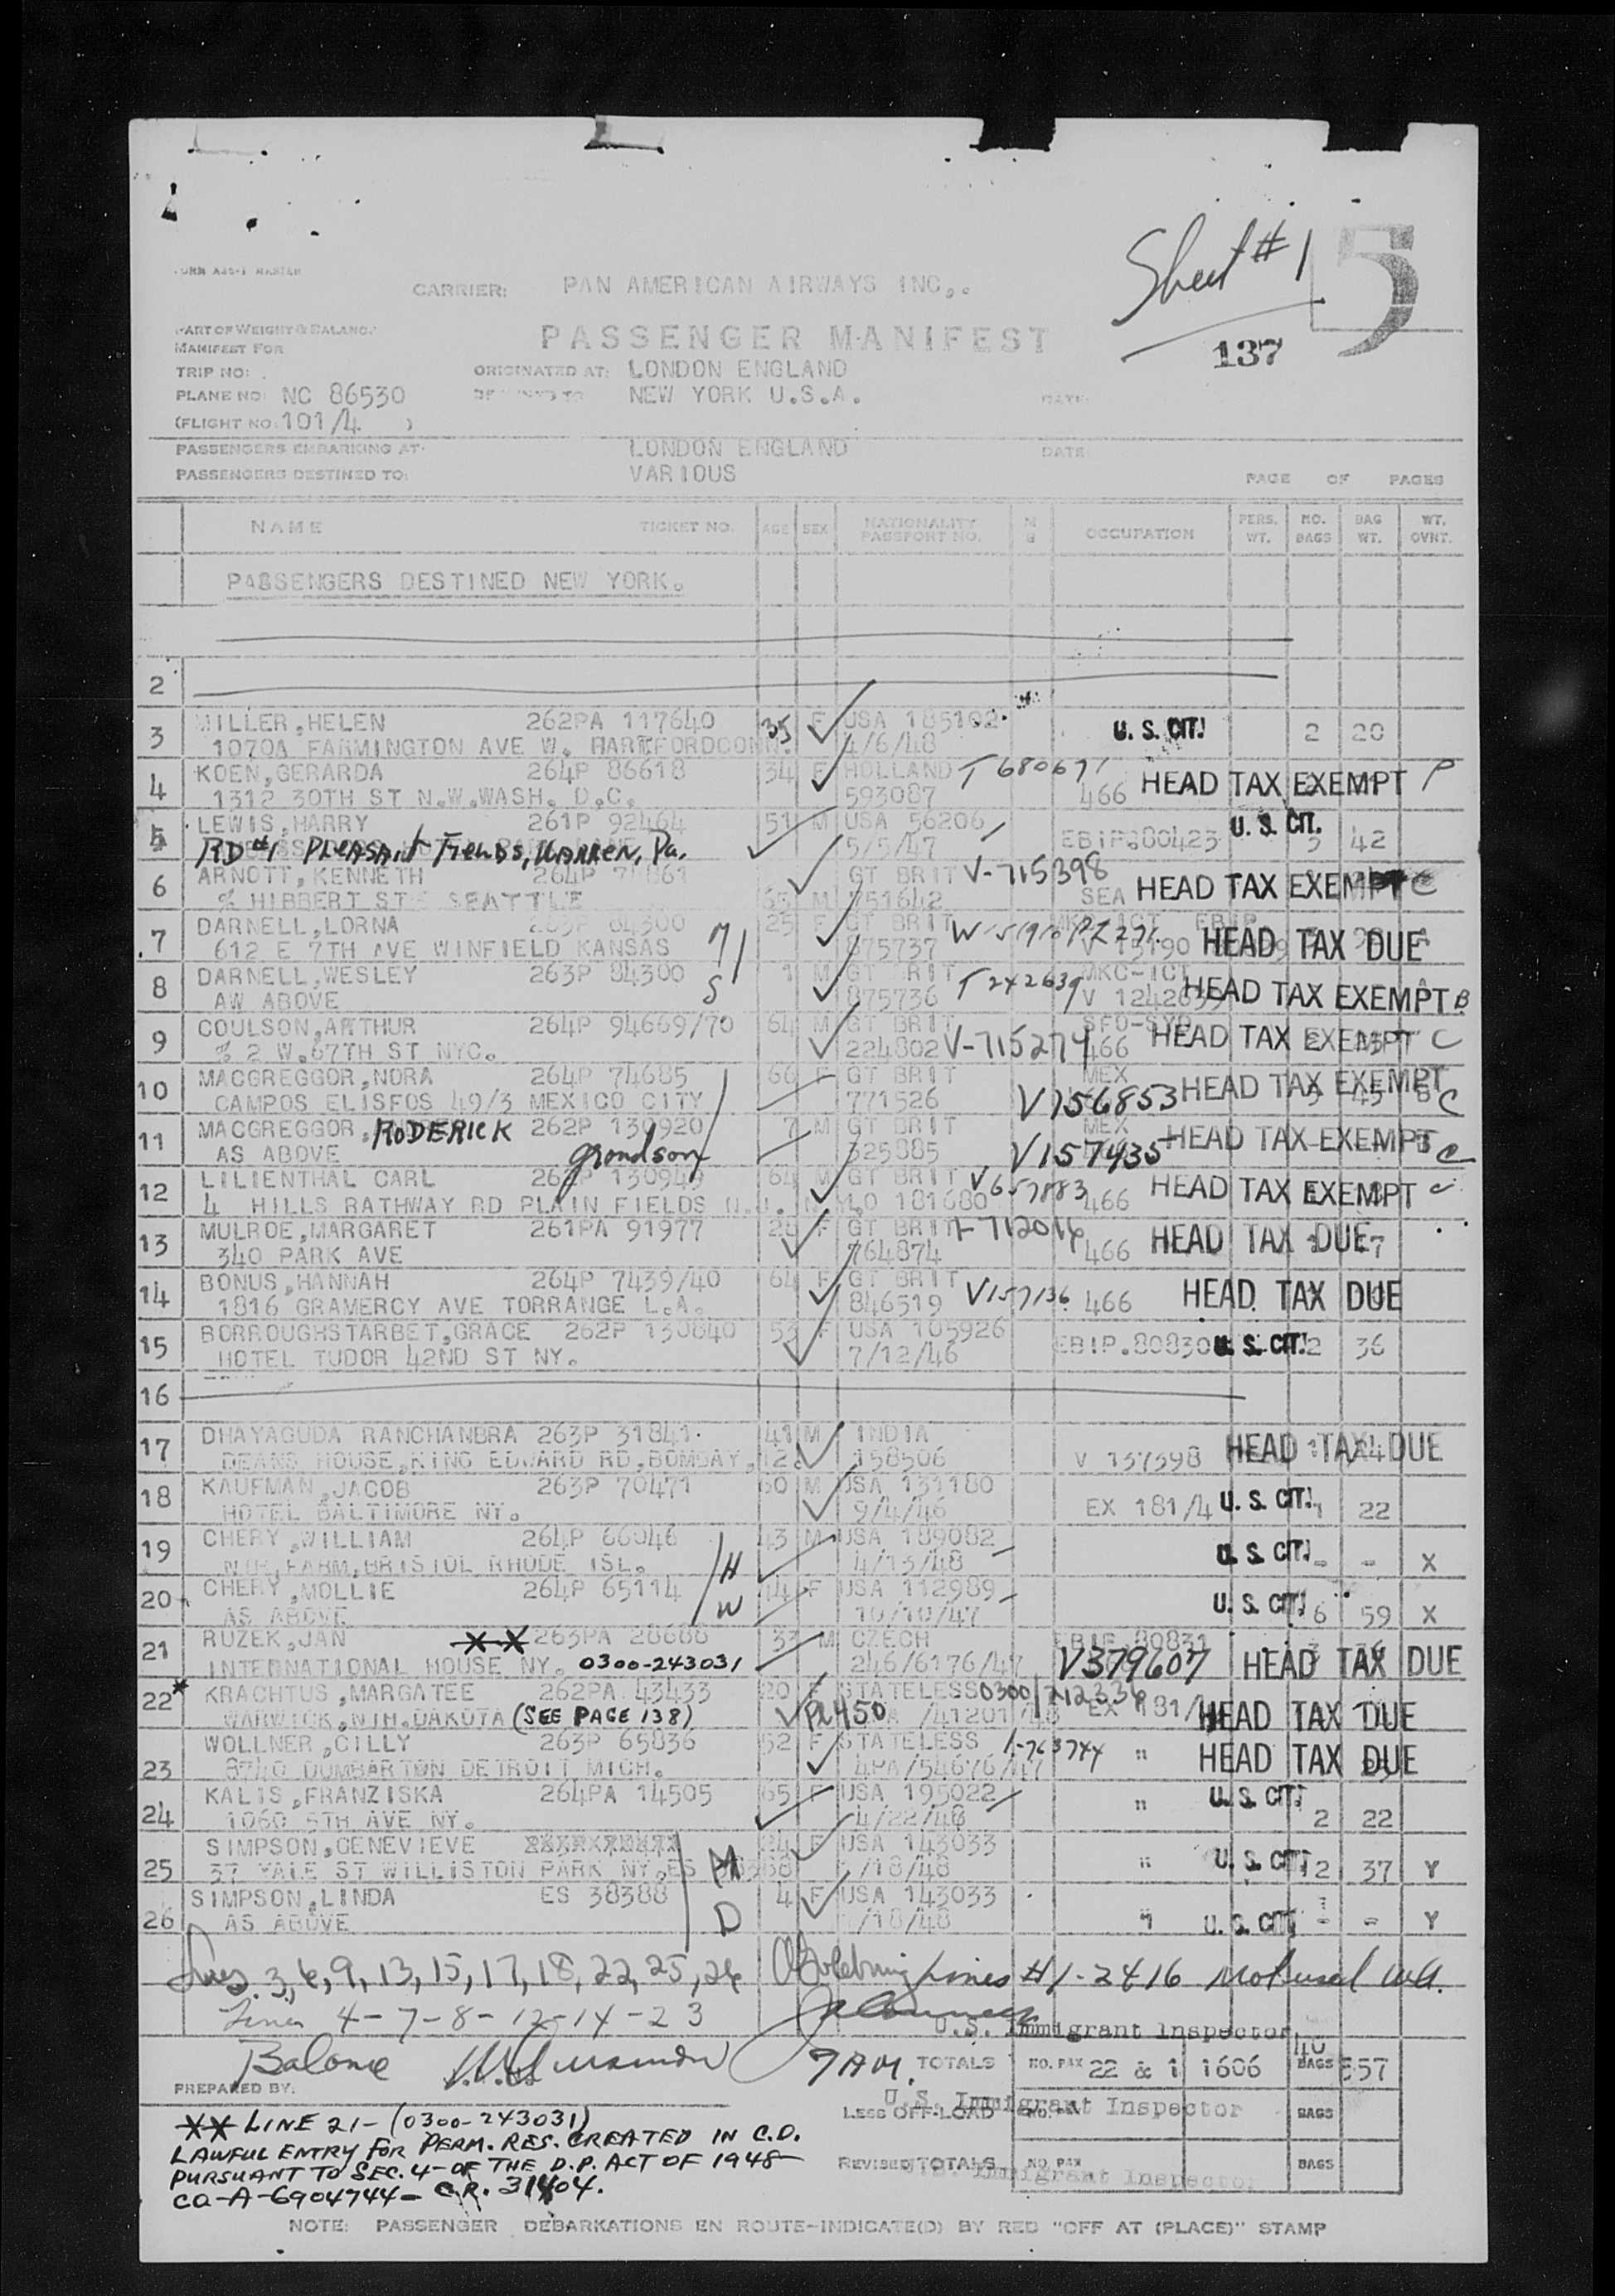 Sheet #1
5
137
CARRIER: PAN AMERICAN AIRWAYS INC,.
PART OF WEIGHT & BALANC
PASSENGER MANIFEST
MANIFEST FOR
TRIP NO: ORIGINATED AT: LONDON ENGLAND
PLANE NO: NC 86530 NEW YORK U.S.A. DATE:
(FLIGHT NO: 101/4 )
PASSENGERS EMBARKING AT: LONDON ENGLAND DATE
PASSENGERS DESTINED TO: VARIOUS PAGE OF PAGES
NAME TICKET NO. AGE SEX NATIONALITY PASSPORT NO. OCCUPATION PERS. WT. NO. BAGS BAG WT. WT. OVNT.
PASSENGERS DESTINED NEW YORK.
2
3 MILLER,HELEN 262PA 117640 35 F USA 185102 U. S. CIT. 2 20
1070A FARMINGTON AVE W. HARTFORDCONN. 4/6/48
4 KOEN,GERARDA 264P 86618 34 F HOLLAND T 680671 HEAD TAX EXEMPT P
1312 30TH ST N.W.WASH. D.C. 593087 466
5 LEWIS,HARRY 261P 92464 51 M USA 56206 EBIP.80423 U. S. CIT. 3 42
RD #1 PLEASANT FIELDS, WARREN, Pa. 5/5/47
6 ARNOTT,KENNETH 264P 65 M GT BRIT V-715398 HEAD TAX EXEMPT C
% HIBBERT ST SEATTLE 751642 SEA
7 DARNELL,LORNA 263P 84300 25 F GT BRIT HEAD TAX DUE
612 E 7TH AVE WINFIELD KANSAS M 875737 V 15190
8 DARNELL,WESLEY 263P 84300 1 M GT BRIT T 242639 MKC-ICT HEAD TAX EXEMPT B
AW ABOVE S 875736 V 1242639
9 COULSON,ARTHUR 264P 94669/70 64 M GT BRIT SFO-SYD HEAD TAX EXEMPT C
% 2 W.67TH ST NYC. 224802 V-715274 466
10 MACGREGGOR,NORA 264P 74685 66 F GT BRIT MEX HEAD TAX EXEMPT C
CAMPOS ELISFOS 49/3 MEXICO CITY 771526 V156853
11 MACGREGGOR, RODERICK 262P 130920 7 M GT BRIT MEX HEAD TAX EXEMPT C
AS ABOVE grandson 525885 V157435
12 LILIENTHAL CARL 262P 130949 64 M GT BRIT V657883 HEAD TAX EXEMPT C
4 HILLS RATHWAY RD PLAIN FIELDS N.J. 181680 466
13 MULROE,MARGARET 261PA 91977 28 F GT BRIT HEAD TAX DUE
340 PARK AVE 764874 466
14 BONUS,HANNAH 264P 7439/40 64 F GT BRIT V157136 HEAD TAX DUE
1816 GRAMERCY AVE TORRANGE L.A. 846519 466
15 BORROUGHSTARBET,GRACE 262P 130840 53 F USA 105926 EBIP.80830 U. S. CIT. 2 36
HOTEL TUDOR 42ND ST NY. 7/12/46
16
17 DHAYAGUDA RANCHANBRA 263P 31841. 41 M INDIA HEAD TAX DUE
DEANS HOUSE,KING EDWARD RD,BOMBAY,12. 158506 V 157598
18 KAUFMAN,JACOB 263P 70471 60 M USA 131180 EX 181/4 U. S. CIT. 1 22
HOTEL BALTIMORE NY. 9/4/46
19 CHERY,WILLIAM 264P 66046 43 M USA 189082 U. S. CIT. - - X
FARM,BRISTOL RHODE ISL. H 4/13/48
20 CHERY,MOLLIE 264P 65114 44 F USA 112989 U. S. CIT. 6 59 X
AS ABOVE W 10/10/47
21 RUZEK,JAN XX 263PA 28688 33 M CZECH EBIP.80831 HEAD TAX DUE
INTERNATIONAL HOUSE NY. 0300-243031 246/6176/47 V379607
22* KRACHTUS,MARGATEE 262PA 43433 20 F STATELESS 0300/712336 HEAD TAX DUE
WARWICK,NTH.DAKOTA (SEE PAGE 138) PL450 /41201/48 EX 181/4
23 WOLLNER,CILLY 263P 65836 52 F STATELESS " HEAD TAX DUE
8740 DUMBARTON DETROIT MICH. 4PA/54676/47
24 KALIS,FRANZISKA 264PA 14505 65 F USA 195022 " U. S. CIT. 2 22
1060 5TH AVE NY. 4/22/48
25 SIMPSON,GENEVIEVE 24 F USA 143033 " U. S. CIT. 2 37 Y
37 YALE ST WILLISTON PARK NY,ES M /18/48
26 SIMPSON,LINDA ES 38388 4 F USA 143033 " U. S. CIT. - - Y
AS ABOVE D /18/48
Lines 3,6,9,13,15,17,18,22,25,26 Lines #1-2 & 16 Not used
Lines 4-7-8-12-14-23
U.S. Immigrant Inspector
Balance 9 AM. TOTALS NO. PAX 22 & 1 1606 40 BAGS 557
PREPARED BY:
U.S. Immigrant Inspector
LESS OFF-LOAD NO. PAX BAGS
XX LINE 21-(0300-243031)
LAWFUL ENTRY FOR PERM. RES. CREATED IN C.O.
PURSUANT TO SEC. 4-OF THE D.P. ACT OF 1948-
CO-A-6904744- C.R. 31404.
REVISED TOTALS NO. PAX BAGS
U.S. Immigrant Inspector
NOTE: PASSENGER DEBARKATIONS EN ROUTE-INDICATE(D) BY RED "OFF AT (PLACE)" STAMP